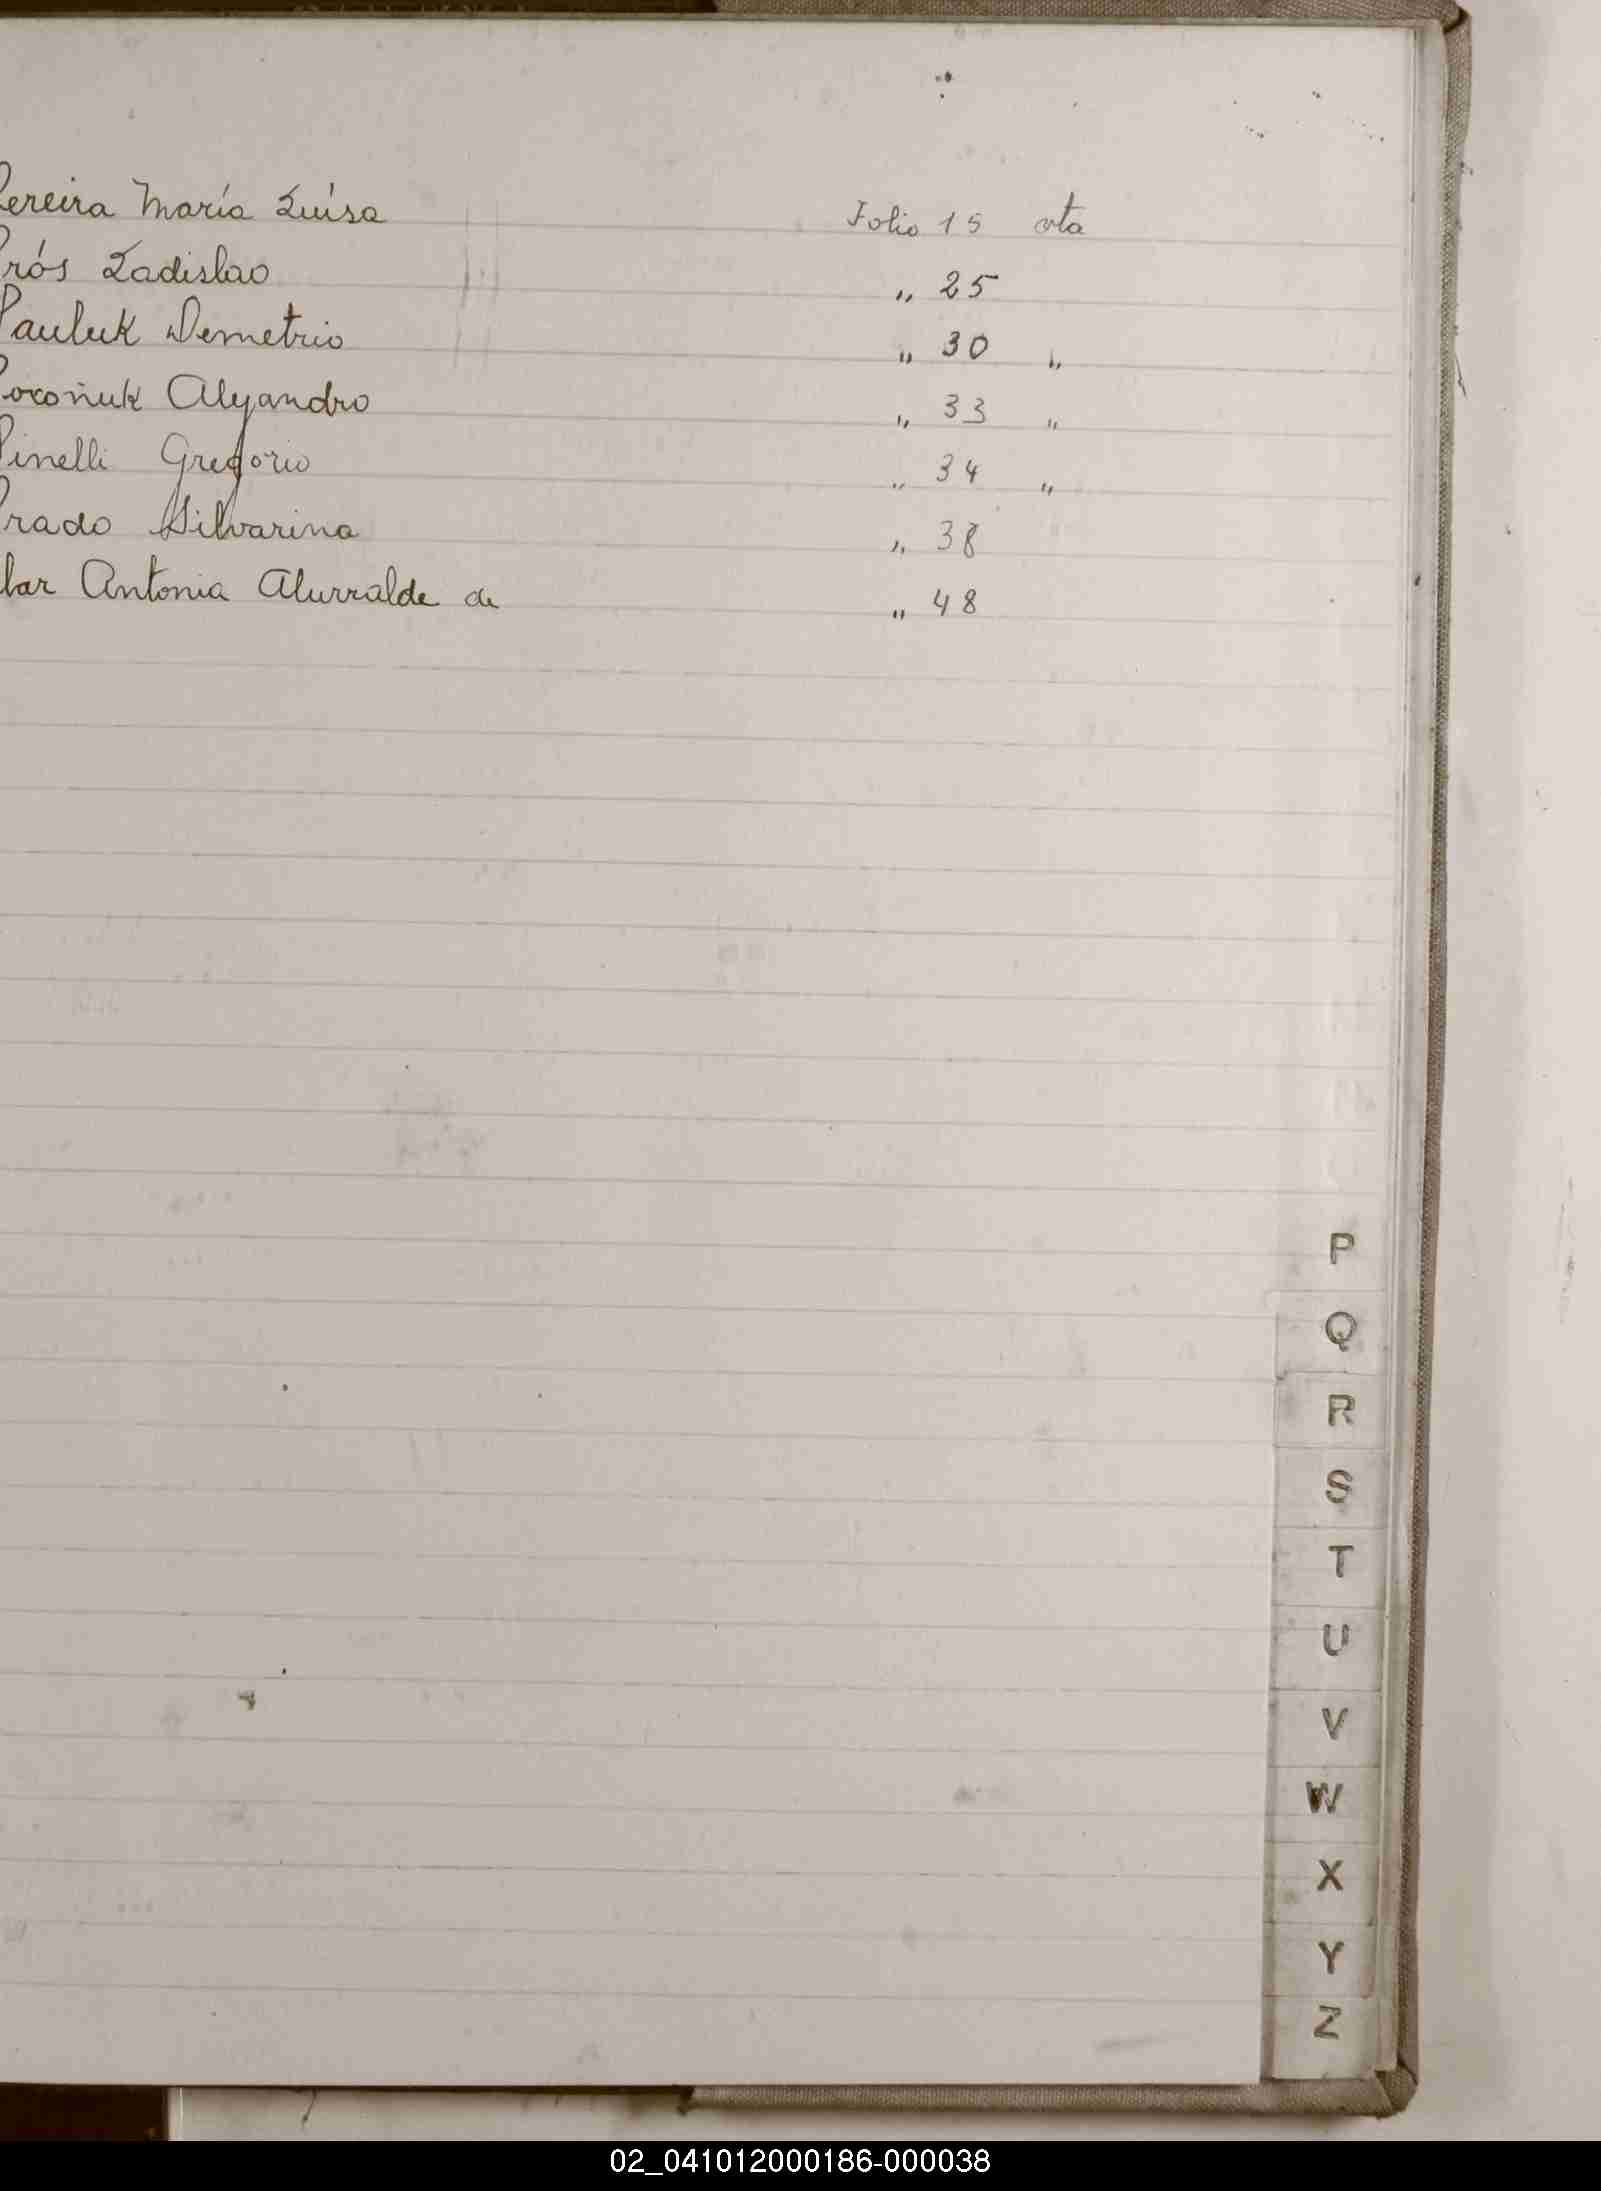 Pereira María Luísa Folio 15 vta
Prós Ladislao " 25
Pauluk Demetrio " 30 "
Poroñuk Alejandro " 33 "
Pinelli Gregorio " 34 "
Prado Silvarina " 38
lar Antonia Alurralde de " 48
P
Q
R
S
T
U
V
W
X
Y
Z
02_041012000186-000038